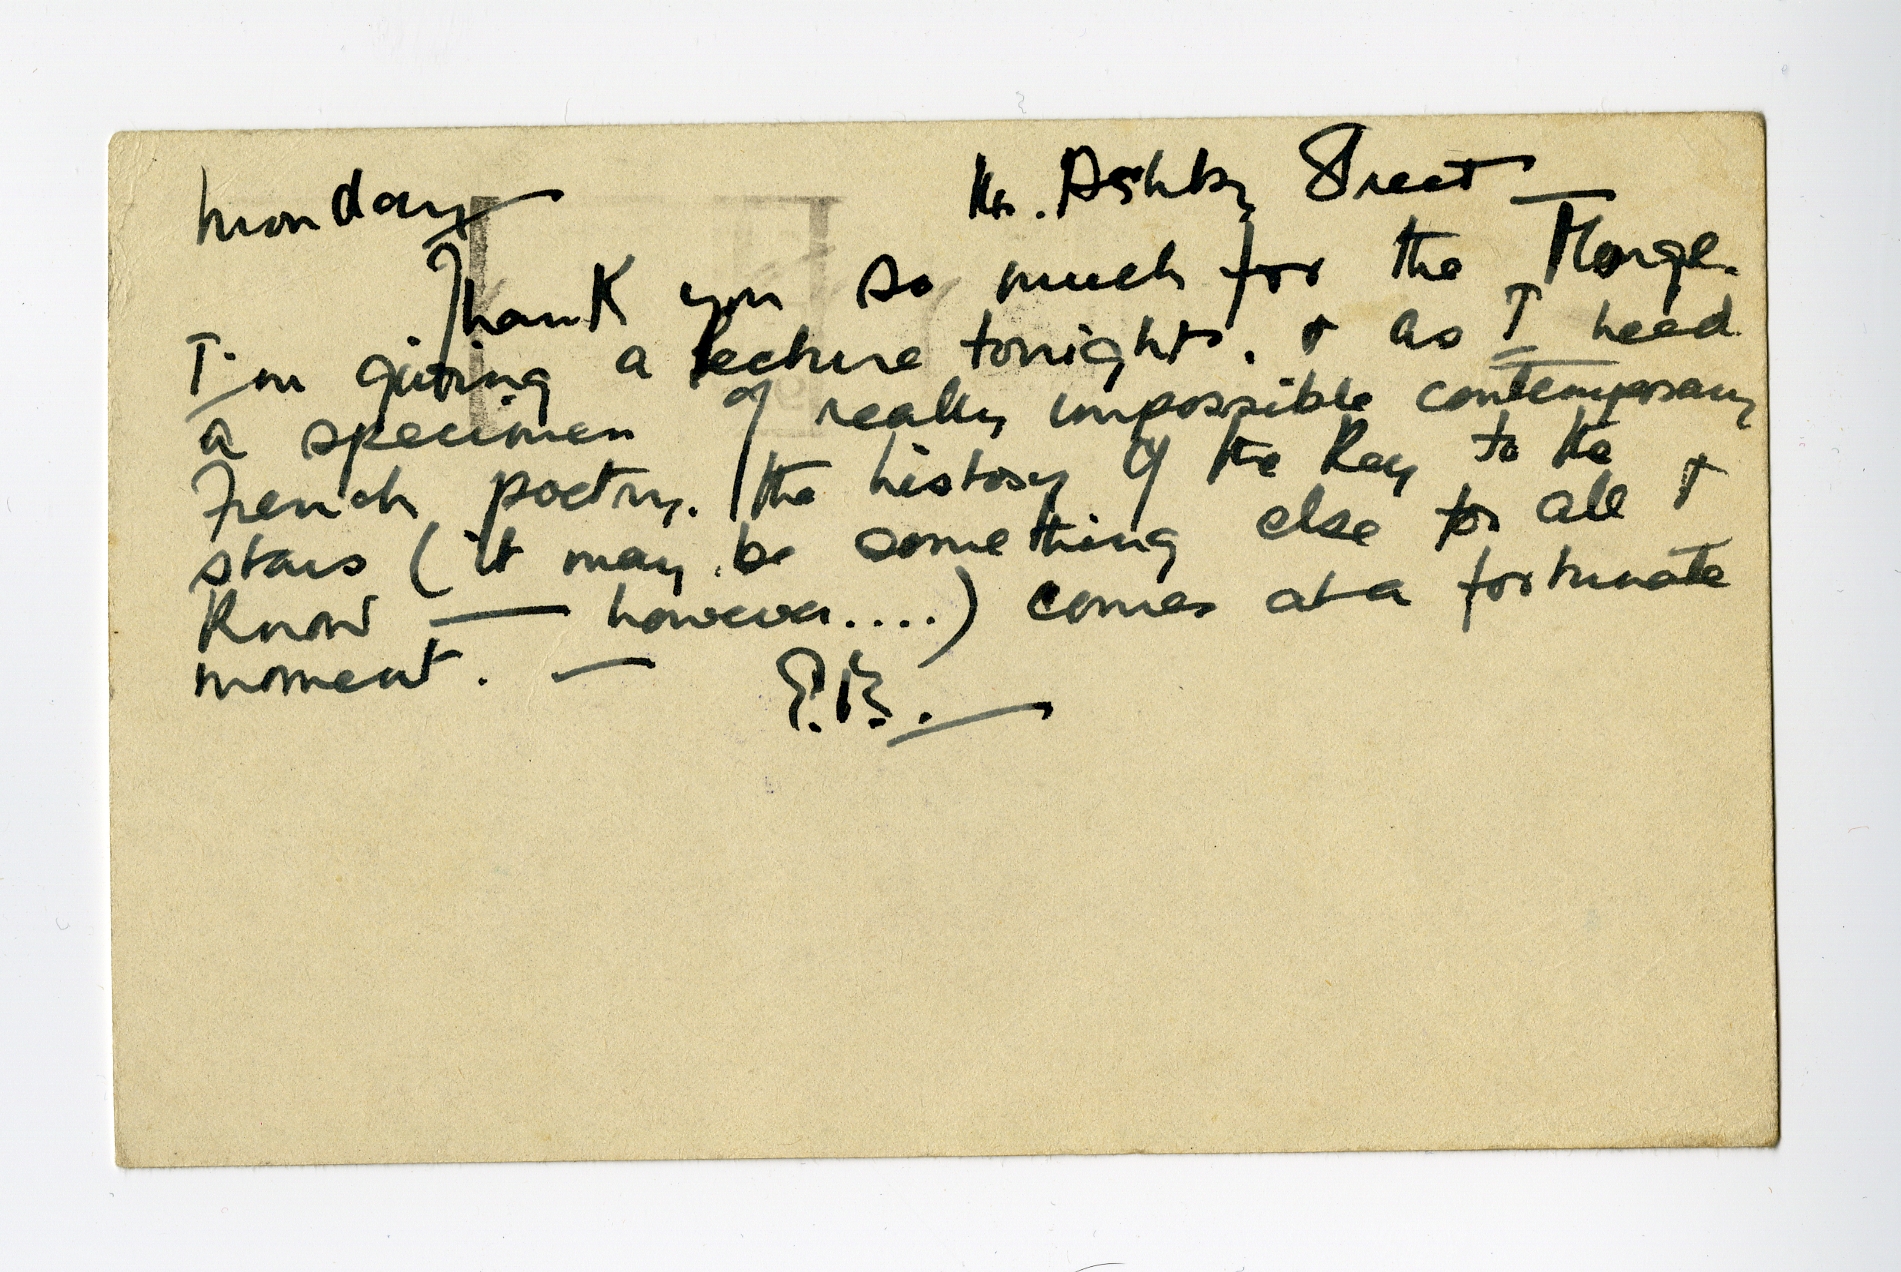 Monday Ashby Street
Thank you so much for the
I'm giving a lecture tonight. & as I need
a specimen of really impossible contemporary
French poetry. the history of the Key to the
stars (it may be something else for all I
know — however....) comes at a fortunate
moment. — E.B.